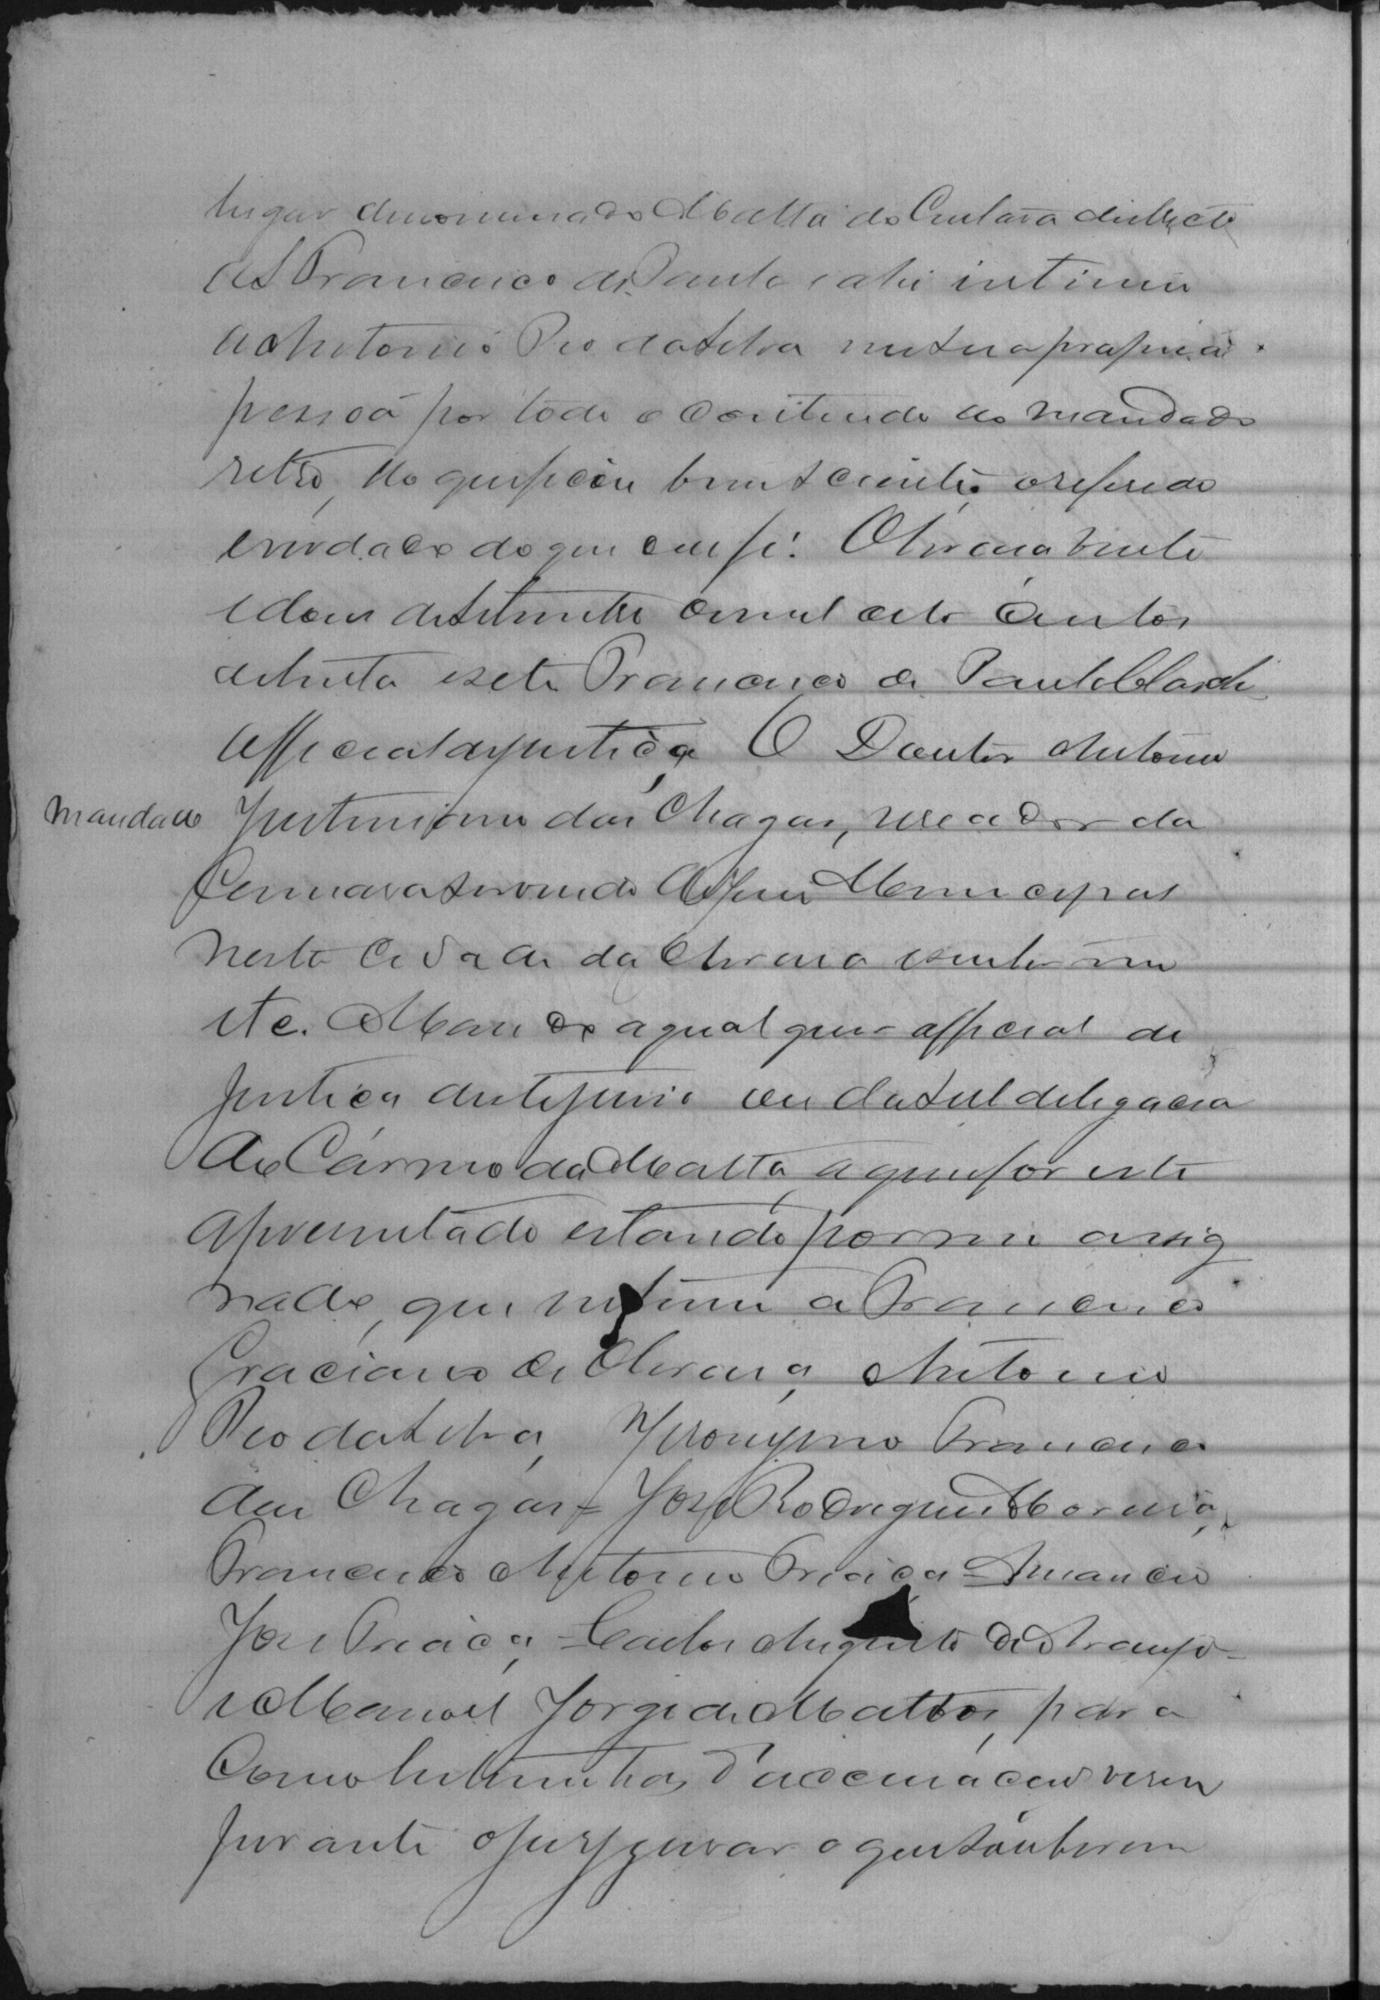 lugar denominado Matta do districto
de S Francisco de Paula e ahi intimei
a Antonio Pio da Silva em sua propria
pessoa por todo o conteudo do mandado
retro, do que ficou bem sciente, o referido
é verdade do que dou fé. Oliveira vinte
e dous de Setembro de mil oito centos
e trinta e sete Francisco de Paula
official de justiça O Doutor Antonio
Mandado Justiniano das Chagas, vereador da
Camara servindo de Juis Municipal
nesta Cidade da Oliveira e seu termo
etc. Mando a qual quer official de
justiça deste juiso ou da subdelegacia
do Carmo da Matta, a quem for este
apresentado estando por mim assig
nado, que intime a Francisco
Graciano de Oliveira, Antonio
Pio da Silva, Jeronymo Francisco
das Chagas = José Rodrigues Moreira,
Francisco Antonio Friaça = Amancio
José Friaça, = Carlos Augusto de Araujo =
e Manoel Jorge de Mattos, para
como testemunhas d'accusação virem
perante o juis jurar o que souberem